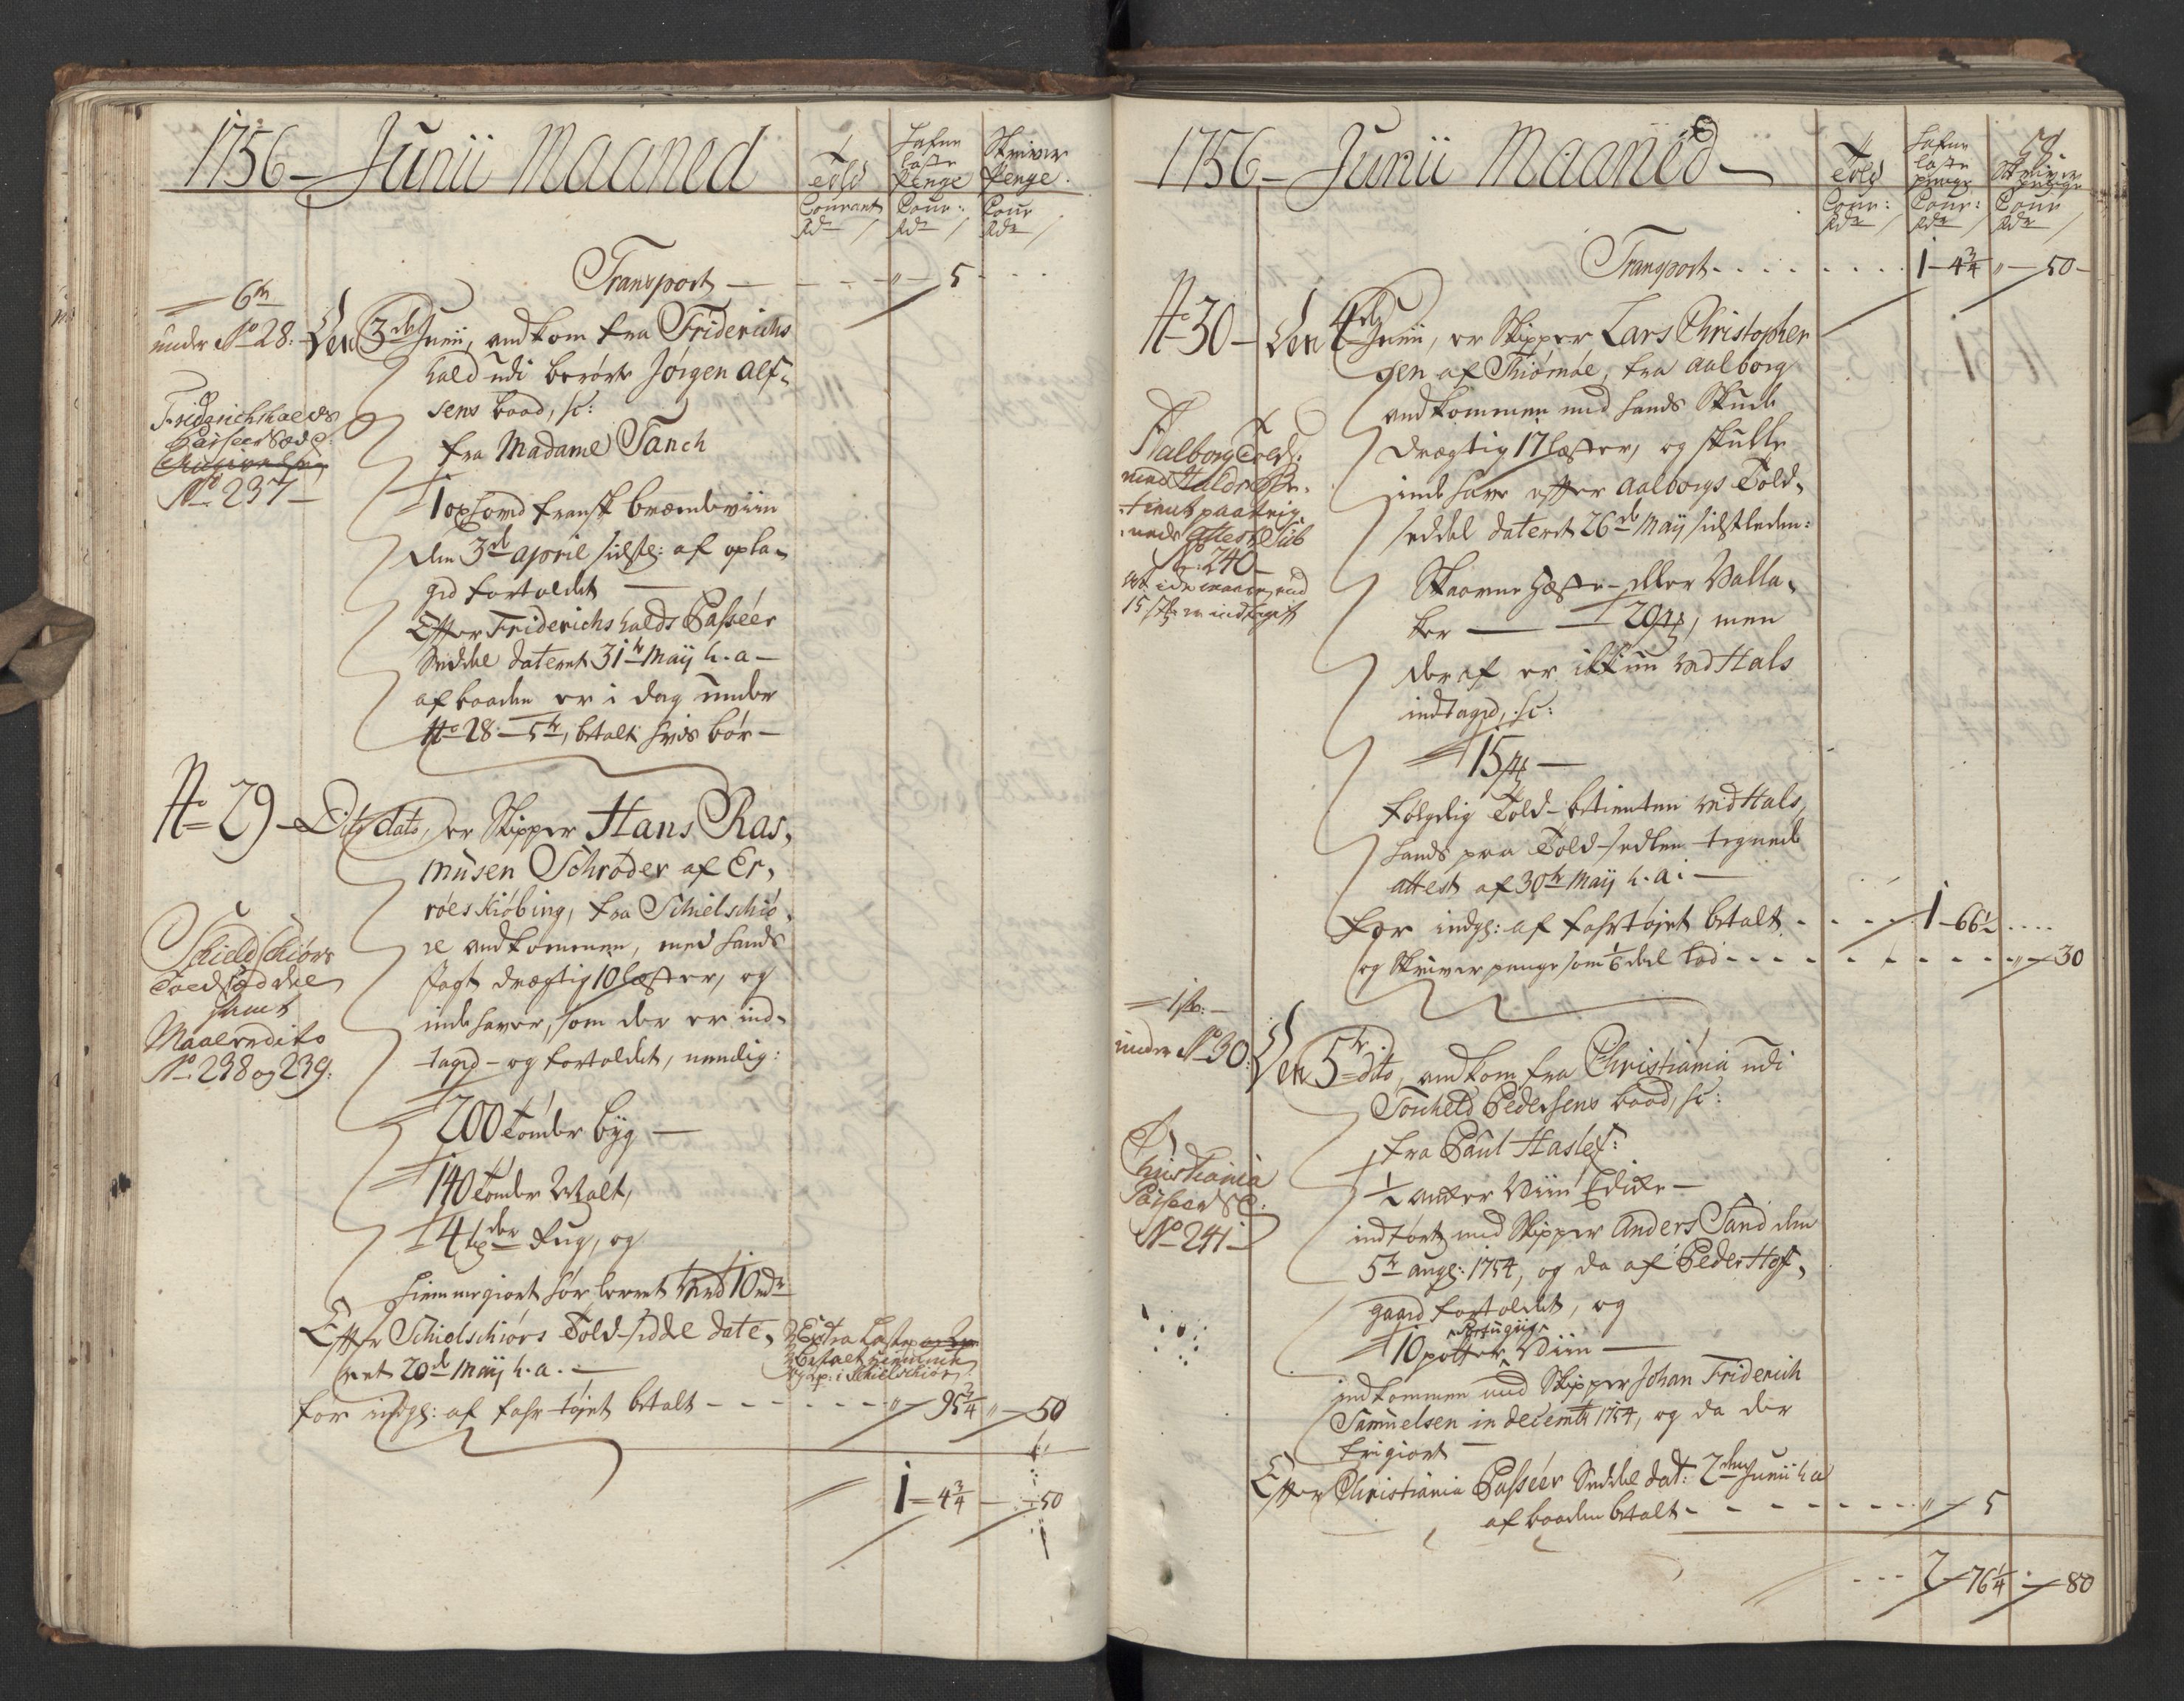 1756 – Junii Maaned
Told
Courant
Rdr
Hafne
Laste
Penge
Cour:
Rdr
Skriver
Penge.
Cour
Rdr
Transport — - - - „ — 5 - - -
6te
under No 28.
Den 3de Junii, andkom fra Friderichs
hald udi berørte Jörgen Alf-
sens baad, sc:
fra Madame Tanch
Friderichshalds
Passeer Sedd:
No 237 –
1 oxhovd fransk brændeviin
den 3de April sidstl: af opla-
gid fortoldet —
Effter Friderichshalds Passéer
Seddel dateret 31te Maij h. a –
af baaden er i dag under
No 28 – 5 te, betalt hvis bör –
No 29 – Dito dato, er Skipper Hans Ras-
musen Schröder af Er-
röes Kiöbing, fra Schielschiö-
re andkommen, med hands
Jagt drægtig 10 læster, og
inde haver, som der er ind-
tagd – og fortoldet, nemlig:
Schield schiörs
Toldseddel
samt
Maaleredito
No 238 og 239.
200 Tönder byg —
140 Tönder Malt,
4 tdr Rug, og
hiemmegiort hör lærret værd 10 rdr
Effter Schielschiörs Told-seddel date-
ret 20de Maij h. a. —
Extra Laste
betalt
i Schielschiör
for indgl: af fahr-töjet betalt - - - - - - - „ — 95 3/4 „ — 50
1 – 4 3/4 — „ – 50
1756 – Junii Maaned –
Told
Cour:
Rdr
Hafne
Laste
penge
Cour:
Rdr
Skriver
penge
Cour
Rdr
Transport - - - - - - - - - 1 – 4 3/4 „ — 50 –
No 30 – Den 4de Junii, er Skipper Lars Christopher
sen af Thiömöe, fra Aalborg
andkommen med hands Skude
drægtig 17 læster, og skulle
inde have effter Aalborgs Told-
seddel dateret 26de Maij sidstleden:
Aalborg Told:
med
paateig-
nede Attest Sub
No 240 –
15 st: er indtagit
Skaarne Hæste – eller Valla-
ker — — 20 st; men
deraf er ikkun ved Hals
indtaged, sc:
15 st —
følgelig Told-betienten ved Hals,
hands paa Told-sedlen tegnede
attest af 30te Maij h. a: —
for indgl: af fahrtöjet betalt - - - - 1 – 66 1/2 ....
og Skriver penge som 1/6 deel lod - - - - - - - - - „ — 30
– 1ste: –
under No 30:
Den 5te dito, andkom fra Christiania udi
Torcheld Pedersens baad, sc:
fra Paul Haslef:
Christiania
Passeer Se:
No 241 –
1/2 anker Viin Edike —
indfört med Skipper Anders Sand den
5te augl: 1754, og da af Peder Hof-
gaard fortoldet, og
10 potter Portugiis Viin —
indkommen med Skipper Johan Friderich
Samuelsen in decembr 1754, og da der
frigiort —
Effter Christiania Passéer Seddel dat: 2den Junii h a
af baaden betalt - - - - - - - - „ — 5
- - - 2 – 76 1/4 „ — 80